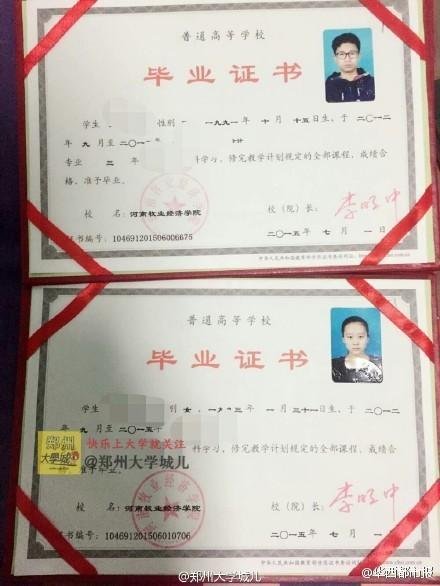 普通高等学校
毕业证书
学生 性别 一九九一年 十月 十五日生，于 二〇一二
年 九月至 二〇一 年
专业 三 年 科学习，修完教学计划规定的全部课程，成绩合
格，准予毕业。
校 名：河南牧业经济学院 校（院）长：李明中
证书编号：104691201506006675 二〇一五年 七月 一日
中华人民共和国教育部学历证书查询网址：
普通高等学校
毕业证书
学生 别 女，一九 三年 一月 三十一日生，于 二〇一二
年 九月至 二〇一五年
科学习，修完教学计划规定的全部课程，成绩
准予毕业。
郑州
大学城
快乐上大学就关注
@郑州大学城儿
校 名：河南牧业经济学院 校（院）长：李明中
证书编号：104691201506010706 二〇一五年 七月 一
中华人民共和国教育部学历证书查询网址：
@郑州大学城儿
@华西都市报